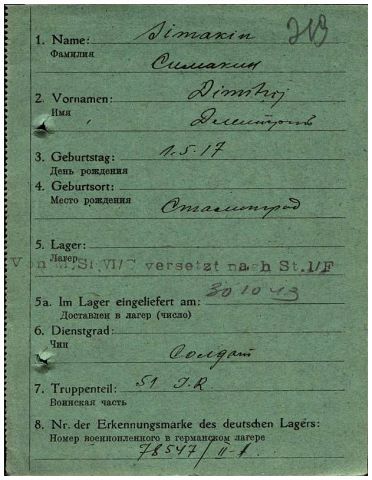 1. Name: Simakin
Фамилия Симакин
2. Vornamen: Dimitrij
Имя
3. Geburtstag: 1.5.17
День рождения
4. Geburtsort:
Место рождения Сталинград
5. Lager:
Лагер
Von M.St.VI/C versetzt nach St.I/F
5a. Im Lager eingeliefert am: 30 10 43
Доставлен в лагер (число)
6. Dienstgrad:
Чин Солдат
7. Truppenteil: 51 J.R.
Воинская часть
8. Nr. der Erkennungsmarke des deutschen Lagers:
Номер военнопленного в германском лагере
78547/II-A